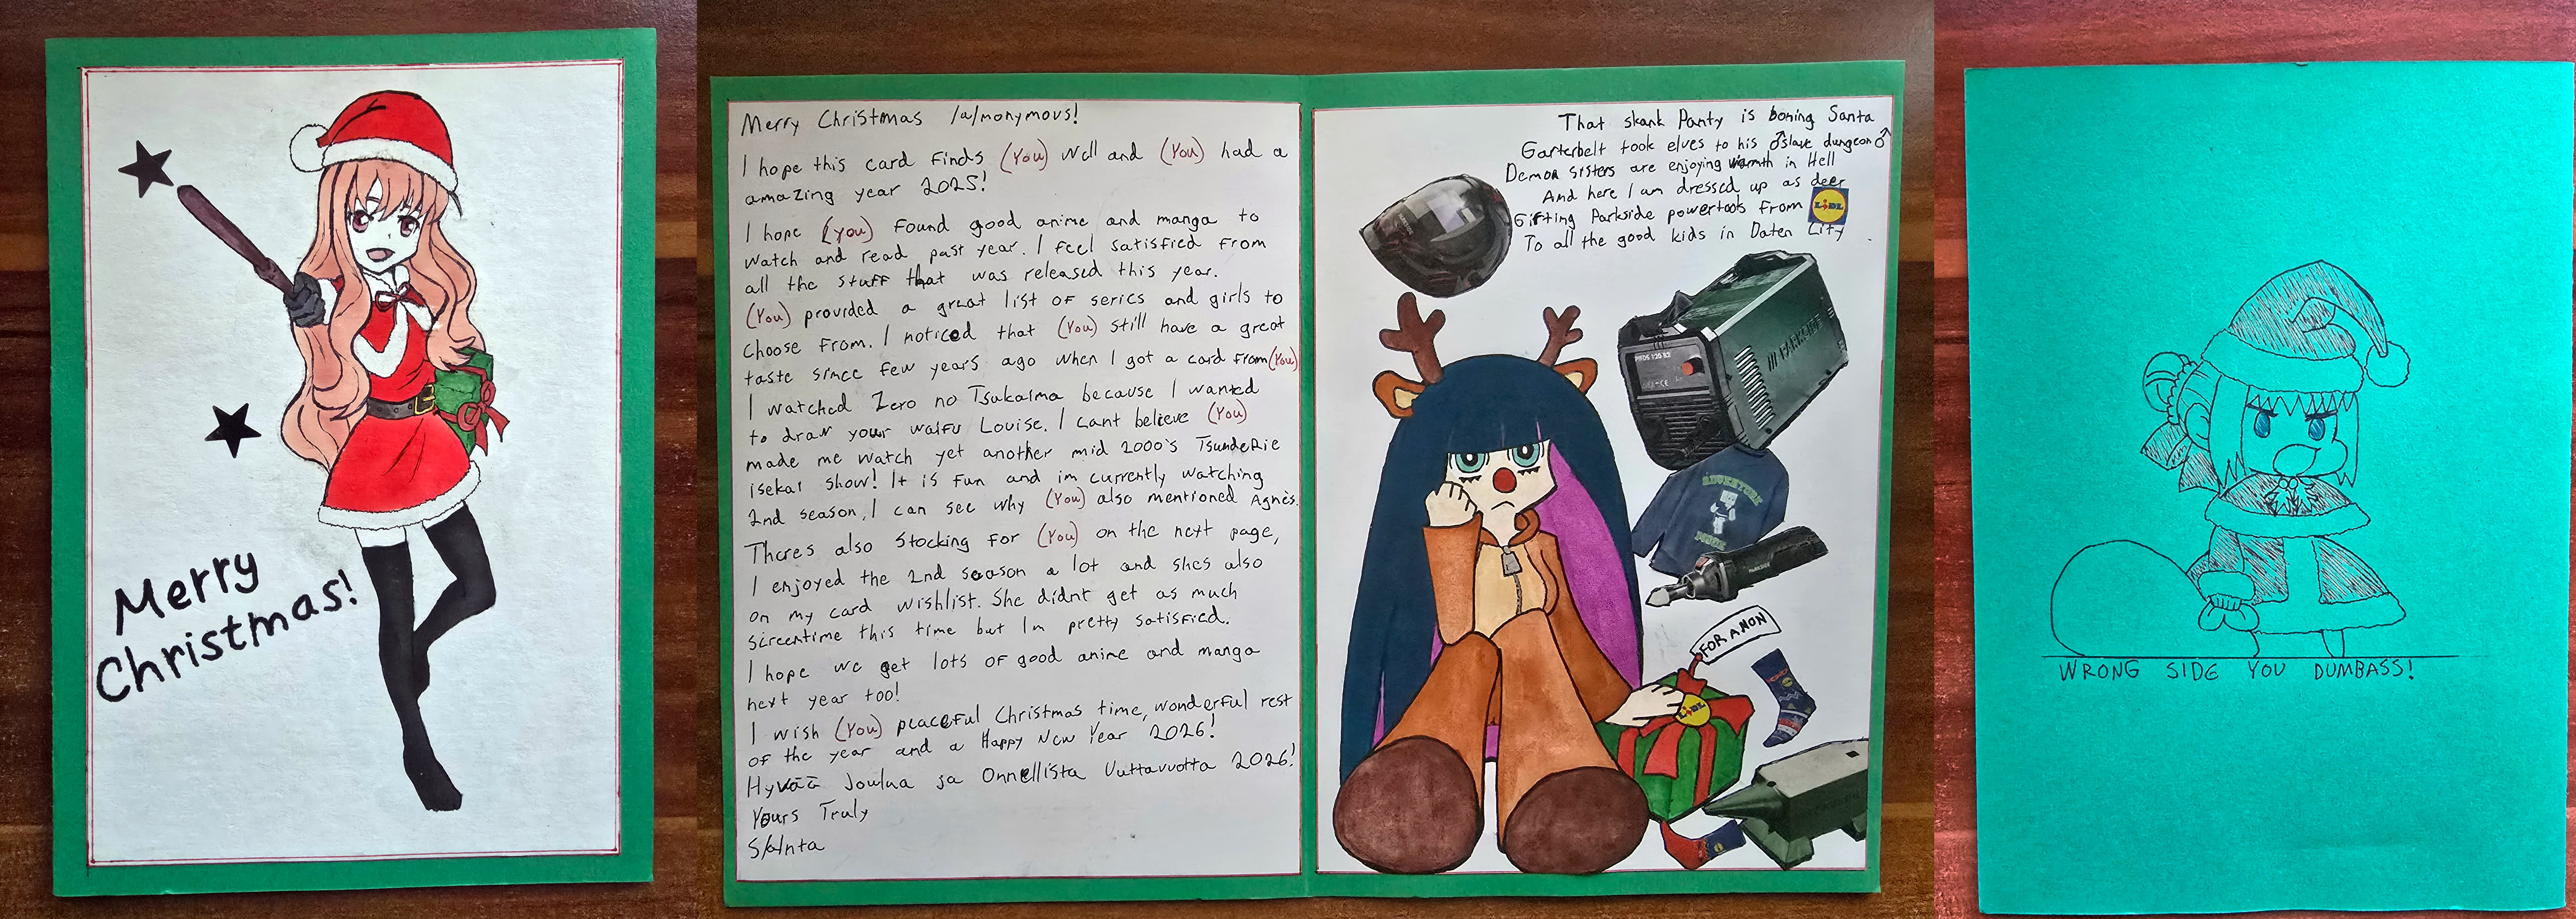 Merry
Christmas!
Merry Christmas /a/nonymous!
I hope this card finds (You) well and (You) had a
amazing year 2025!
I hope (you) found good anime and manga to
watch and read past year. I feel satisfied from
all the stuff that was released this year.
(You) provided a great list of series and girls to
choose from. I noticed that (You) still have a great
taste since few years ago when I got a card from (You)
I watched Zero no Tsukaima because I wanted
to draw your waifu Louise. I cant believe (You)
made me watch yet another mid 2000's TsundeRie
isekai show! It is fun and im currently watching
2nd season, I can see why (You) also mentioned Agnès.
Theres also Stocking for (You) on the next page,
I enjoyed the 2nd season a lot and shes also
on my card wishlist. She didnt get as much
screentime this time but Im pretty satisfied.
I hope we get lots of good anime and manga
next year too!
I wish (You) peaceful Christmas time, wonderful rest
of the year and a Happy New Year 2026!
Hyvää Joulua ja Onnellista Uuttavuotta 2026!
Yours Truly
S/a/nta
That skank Panty is boning Santa
Garterbelt took elves to his ♂slave dungeon♂
Demon sisters are enjoying warmth in Hell
And here I am dressed up as deer
Gifting Parkside powertools from LIDL
To all the good kids in Daten City
PARKSIDE
ADVENTURE
PARKSIDE
FOR ANON
LIDL
WRONG SIDE YOU DUMBASS!